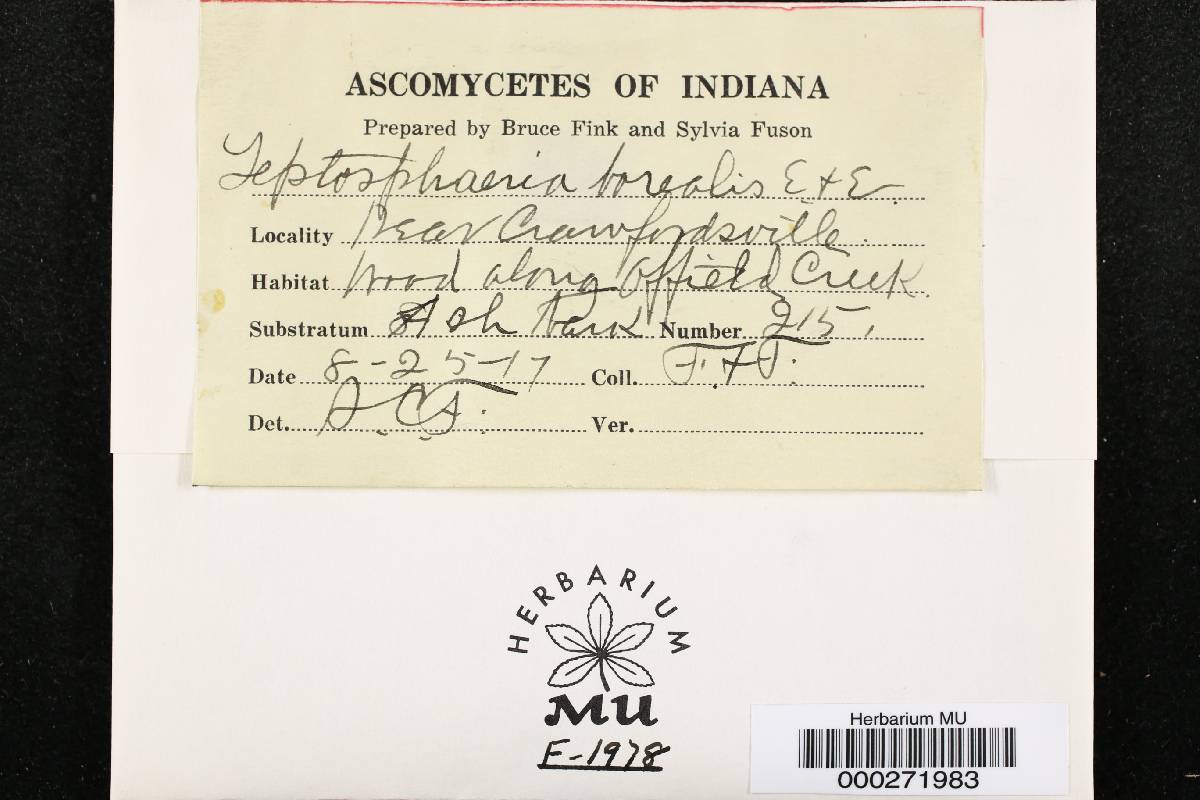 ASCOMYCETES OF INDIANA
Prepared by Bruce Fink and Sylvia Fuson
Leptosphaeria borealis E & E.
Locality Near Crawfordsville.
Habitat Wood along Offield Creek.
Substratum Ash bark Number 215.
Date 8-25-17 Coll.
Det. Ver.
HERBARIUM
MU
F-1978
Herbarium MU
000271983